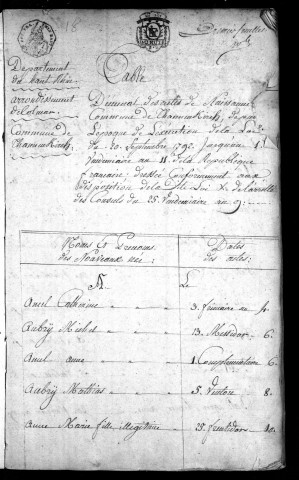 Département
du haut Rhin
arrondissement
de Colmar
Commune de
Table
Décennal des actes de Naissance
Commune de depuis
L'époque de L'exécution de la Loi
du 20. Septembre 1792. Jusqu'au 1.er
Vendemiaire an 11 de la Republique
francaise; dressée Conformément aux
disposition de la dite Loi & de l'arrêté
des Consuls du 25. Vendemiaire an 9:
Noms Et Prenoms
des Nouveaux née:
Dates
des actes:
A
Le
Ancel Catherine " " "
3. frimaire an 4.
Aubry Michel " " "
13. Messidor " 6.
Ancel anne " " "
1. Complementaire 6.
Aubry Mathias " " "
5. Ventose " 8.
Anne Marie fille illegitime "
25. fructidor " 10.